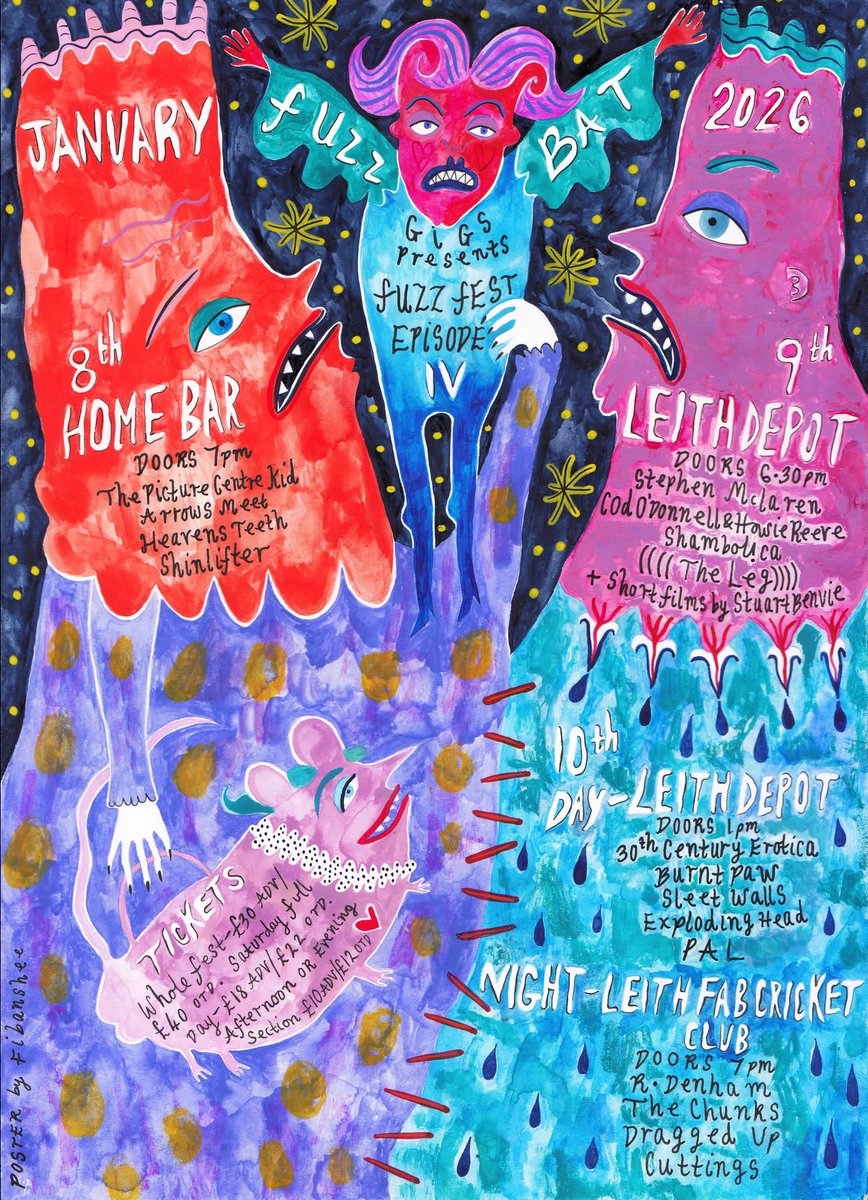 JANUARY
FUZZ BAT
2026
GIGS
Presents
FUZZ FEST
EPISODE
IV
8th
HOME BAR
DOORS 7pm
The Picture Centre Kid
Arrows Meet
Heavens Teeth
Shinlifter
9th
LEITH DEPOT
DOORS 6.30pm
Stephen McLaren
Cod O'Donnell & Howie Reeve
Shambolica
((((( The Leg))))
+ Short films by Stuart Benvie
10th
DAY-LEITH DEPOT
DOORS 1pm
30th Century Erotica
Burnt Paw
Sleet Walls
Exploding Head
PAL
NIGHT-LEITH FAB CRICKET
CLUB
DOORS 7pm
R. Denham
The Chunks
Dragged Up
Cuttings
TICKETS
Whole fest-£30 ADV/
£40 OTD. Saturday full
Day-£18 ADV/£22 OTD.
Afternoon OR Evening
Section £10ADV/£12 OTD
POSTER by Fibanshee